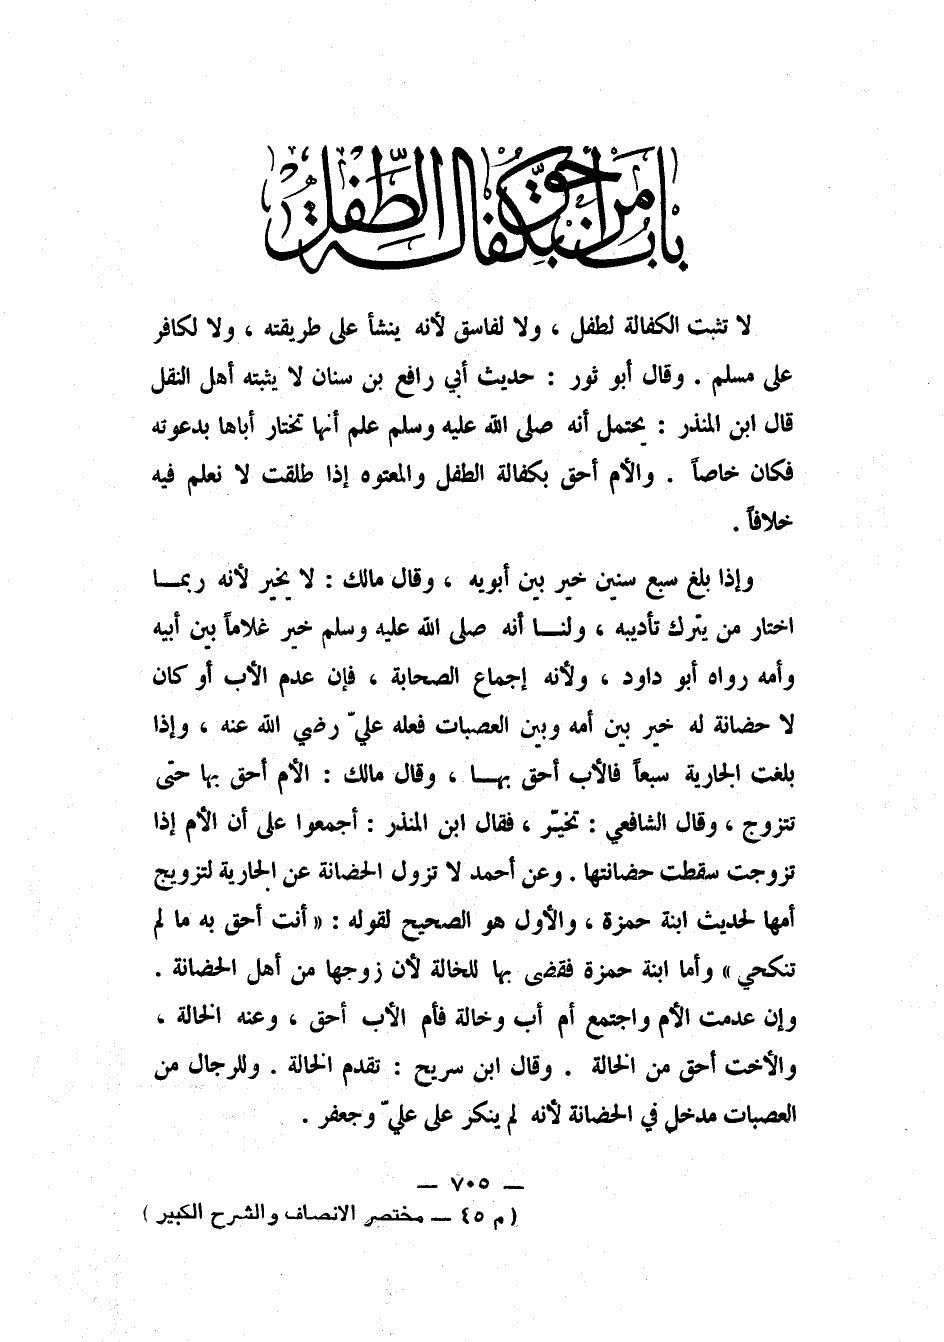 باب من أحق بكفالة الطفل
لا تثبت الكفالة لطفل ، ولا لفاسق لأنه ينشأ على طريقته ، ولا لكافر
على مسلم . وقال أبو ثور : حديث أبي رافع بن سنان لا يثبته أهل النقل
قال ابن المنذر : يحتمل أنه صلى الله عليه وسلم علم أنها تختار أباها بدعوته
فكان خاصاً . والأم أحق بكفالة الطفل والمعتوه إذا طلقت لا نعلم فيه
خلافاً .
وإذا بلغ سبع سنين خير بين أبويه ، وقال مالك : لا يخير لأنه ربمـــا
اختار من يترك تأديبه ، ولنـــا أنه صلى الله عليه وسلم خير غلاماً بين أبيه
وأمه رواه أبو داود ، ولأنه إجماع الصحابة ، فإن عدم الأب أو كان
لا حضانة له خير بين أمه وبين العصبات فعله عليّ رضي الله عنه ، وإذا
بلغت الجارية سبعاً فالأب أحق بهـــا ، وقال مالك : الأم أحق بها حتى
تتزوج ، وقال الشافعي : تخيّر ، فقال ابن المنذر : أجمعوا على أن الأم إذا
تزوجت سقطت حضانتها . وعن أحمد لا تزول الحضانة عن الجارية لتزويج
أمها لحديث ابنة حمزة ، والأول هو الصحيح لقوله : « أنت أحق به ما لم
تنكحي » وأما ابنة حمزة فقضى بها للخالة لأن زوجها من أهل الحضانة .
وإن عدمت الأم واجتمع أم أب وخالة فأم الأب أحق ، وعنه الخالة ،
والأخت أحق من الخالة . وقال ابن سريج : تقدم الخالة . وللرجال من
العصبات مدخل في الحضانة لأنه لم ينكر على عليّ وجعفر .
— ٧٠٥ —
( م ٤٥ — مختصر الانصاف والشرح الكبير )